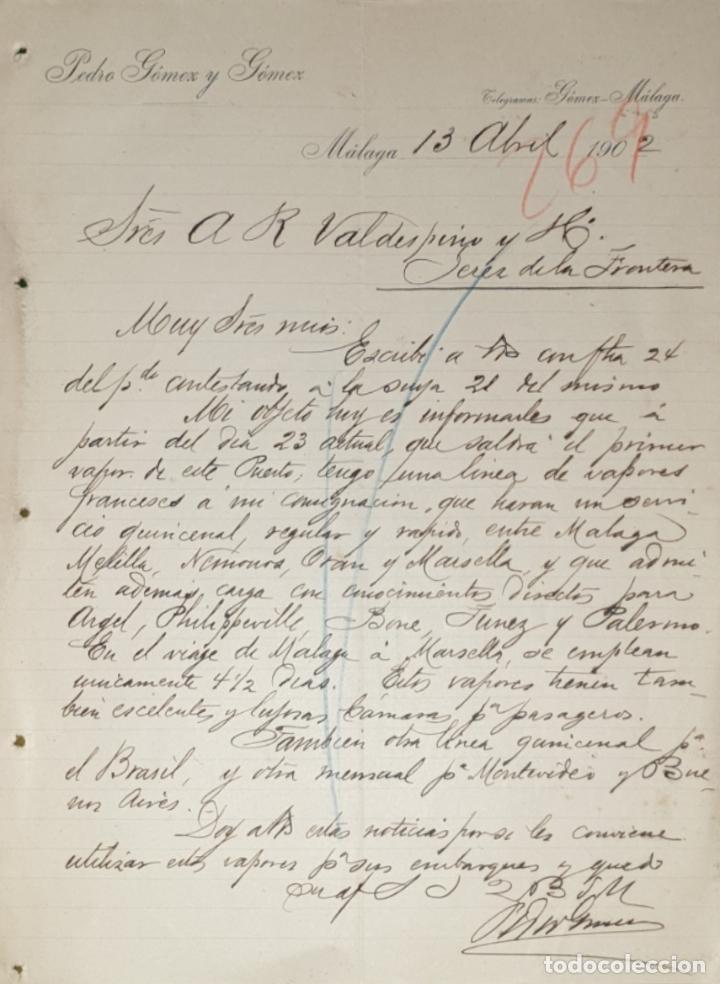 Pedro Gómez y Gómez
Telegramas: Gómez-Málaga.
Málaga 13 Abril 1902
769
Srés A R Valdespino y Hº.
Jerez de la Frontera
Muy Srés mios:
Escribí a Vds con fha 24
del pº. contestando, á la suya 21 del mismo
Mi objeto hoy es informarles que á
partir del dia 23 actual, que saldrá el primer
vapor de este Puerto, tengo una linea de vapores
franceses á mi consignacion, que haran un servi
cio quincenal, regular y rapido, entre Malaga
Melilla, Nemours, Orán y Marsella, y que admi
ten además, carga con conocimientos directos para
Argel, Philippeville, Bone, Tunez y Palermo.
En el viage de Málaga á Marsella, se emplean
unicamente 4 1/2 dias. Estos vapores tienen tam
bien escelentes y lujosas Cámaras pª pasageros.
Tambien otra linea quincenal pª
el Brasil, y otra mensual pª Montevideo y Bue
nos Aires.
Doy a Vds estas noticias por si les conviene
utilizar estos vapores pª sus embarques y quedo
su af S S 2 B S M
todocoleccion.net